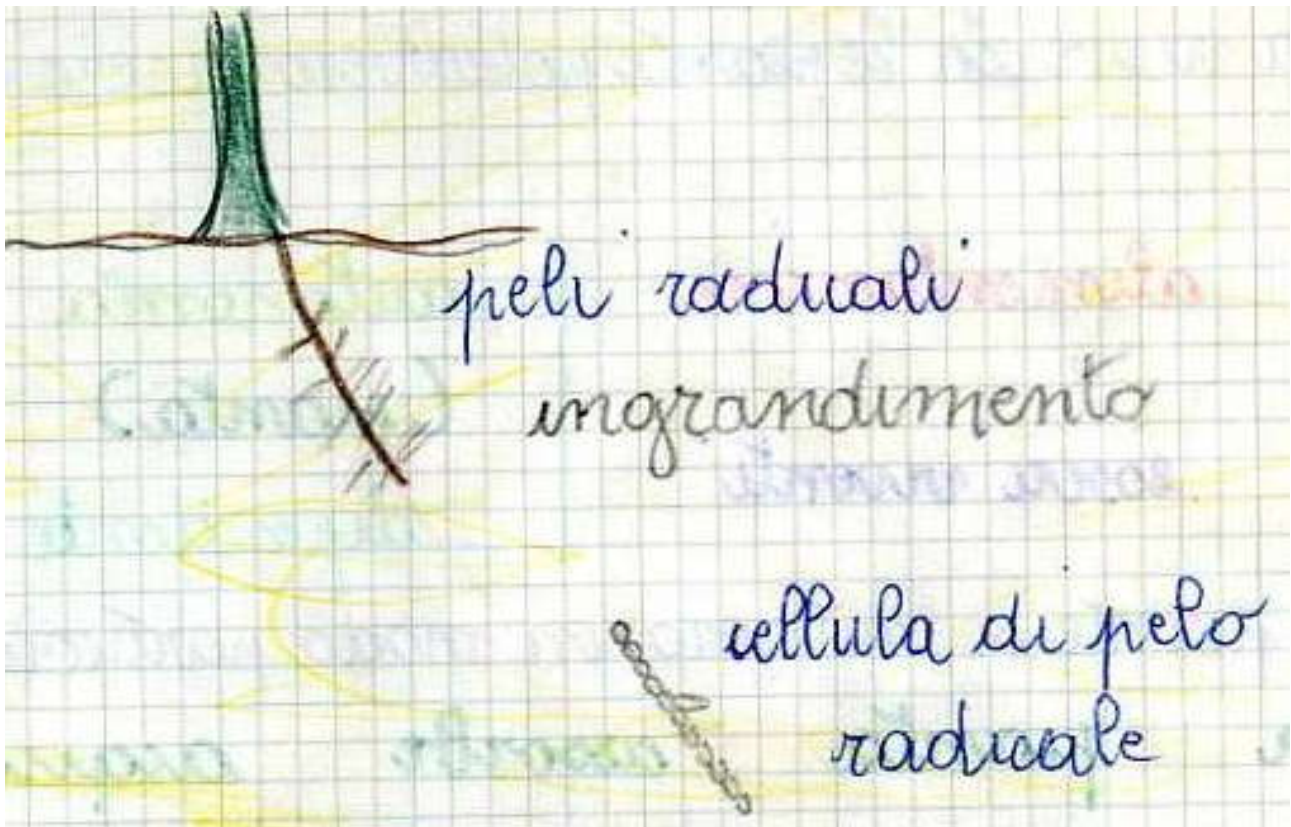 peli radicali
ingrandimento
cellula di pelo
radicale